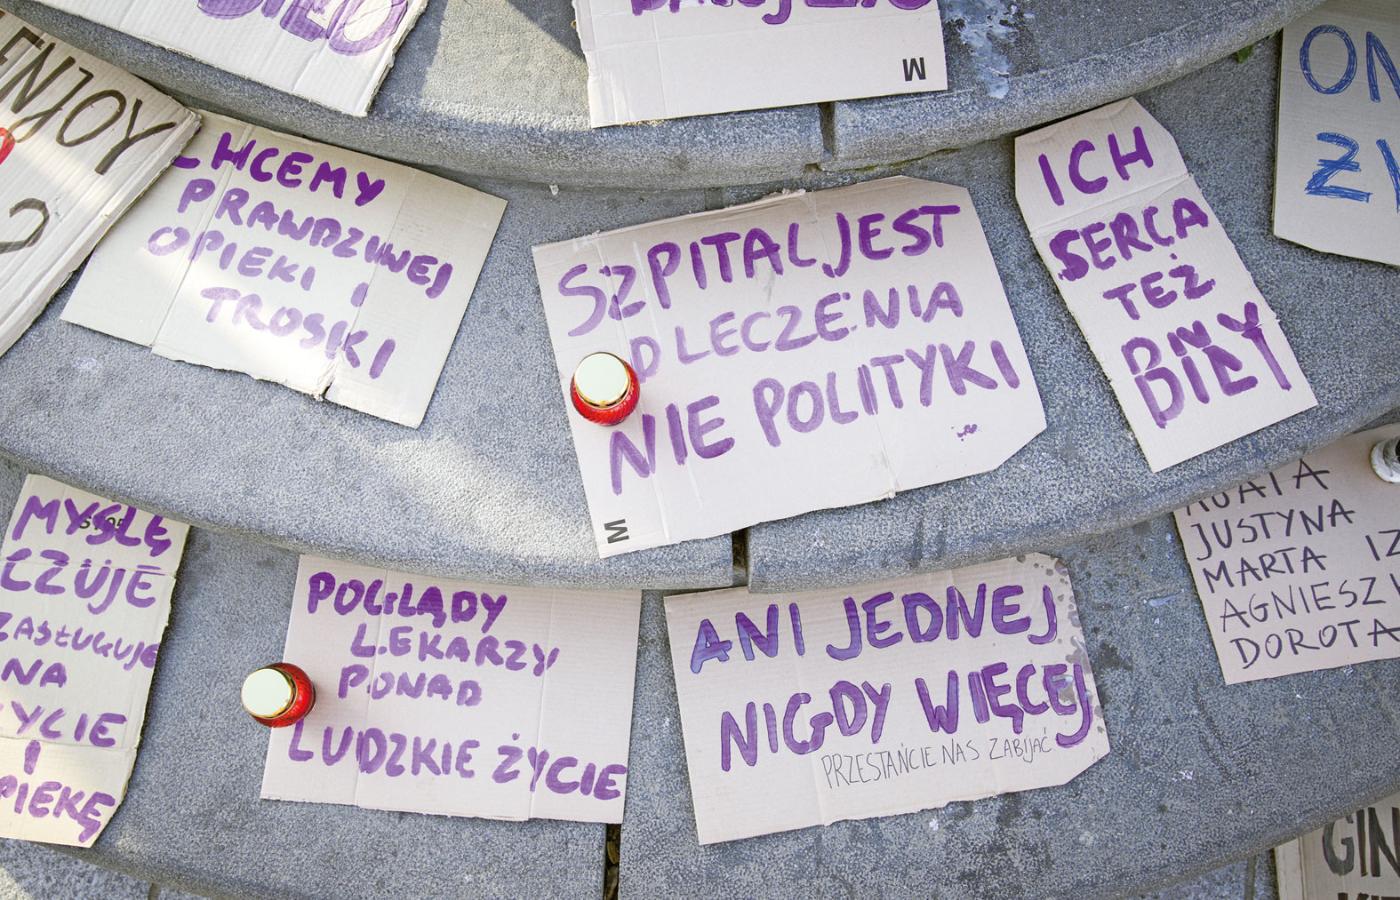 M
ENJOY
?
CHCEMY
PRAWDZIWEJ
OPIEKI I
TROSKI
SZPITAL JEST
OD LECZENIA
NIE POLITYKI
M
ICH
SERCA
TEŻ
BIŁY
ON
MYŚLĘ
CZUJĘ
ZASŁUGUJĘ
NA
ŻYCIE
I
OPIEKĘ
POGLĄDY
LEKARZY
PONAD
LUDZKIE ŻYCIE
ANI JEDNEJ
NIGDY WIĘCEJ
PRZESTAŃCIE NAS ZABIJAĆ
AGATA
JUSTYNA
MARTA IZ
AGNIESZ
DOROTA
GIN